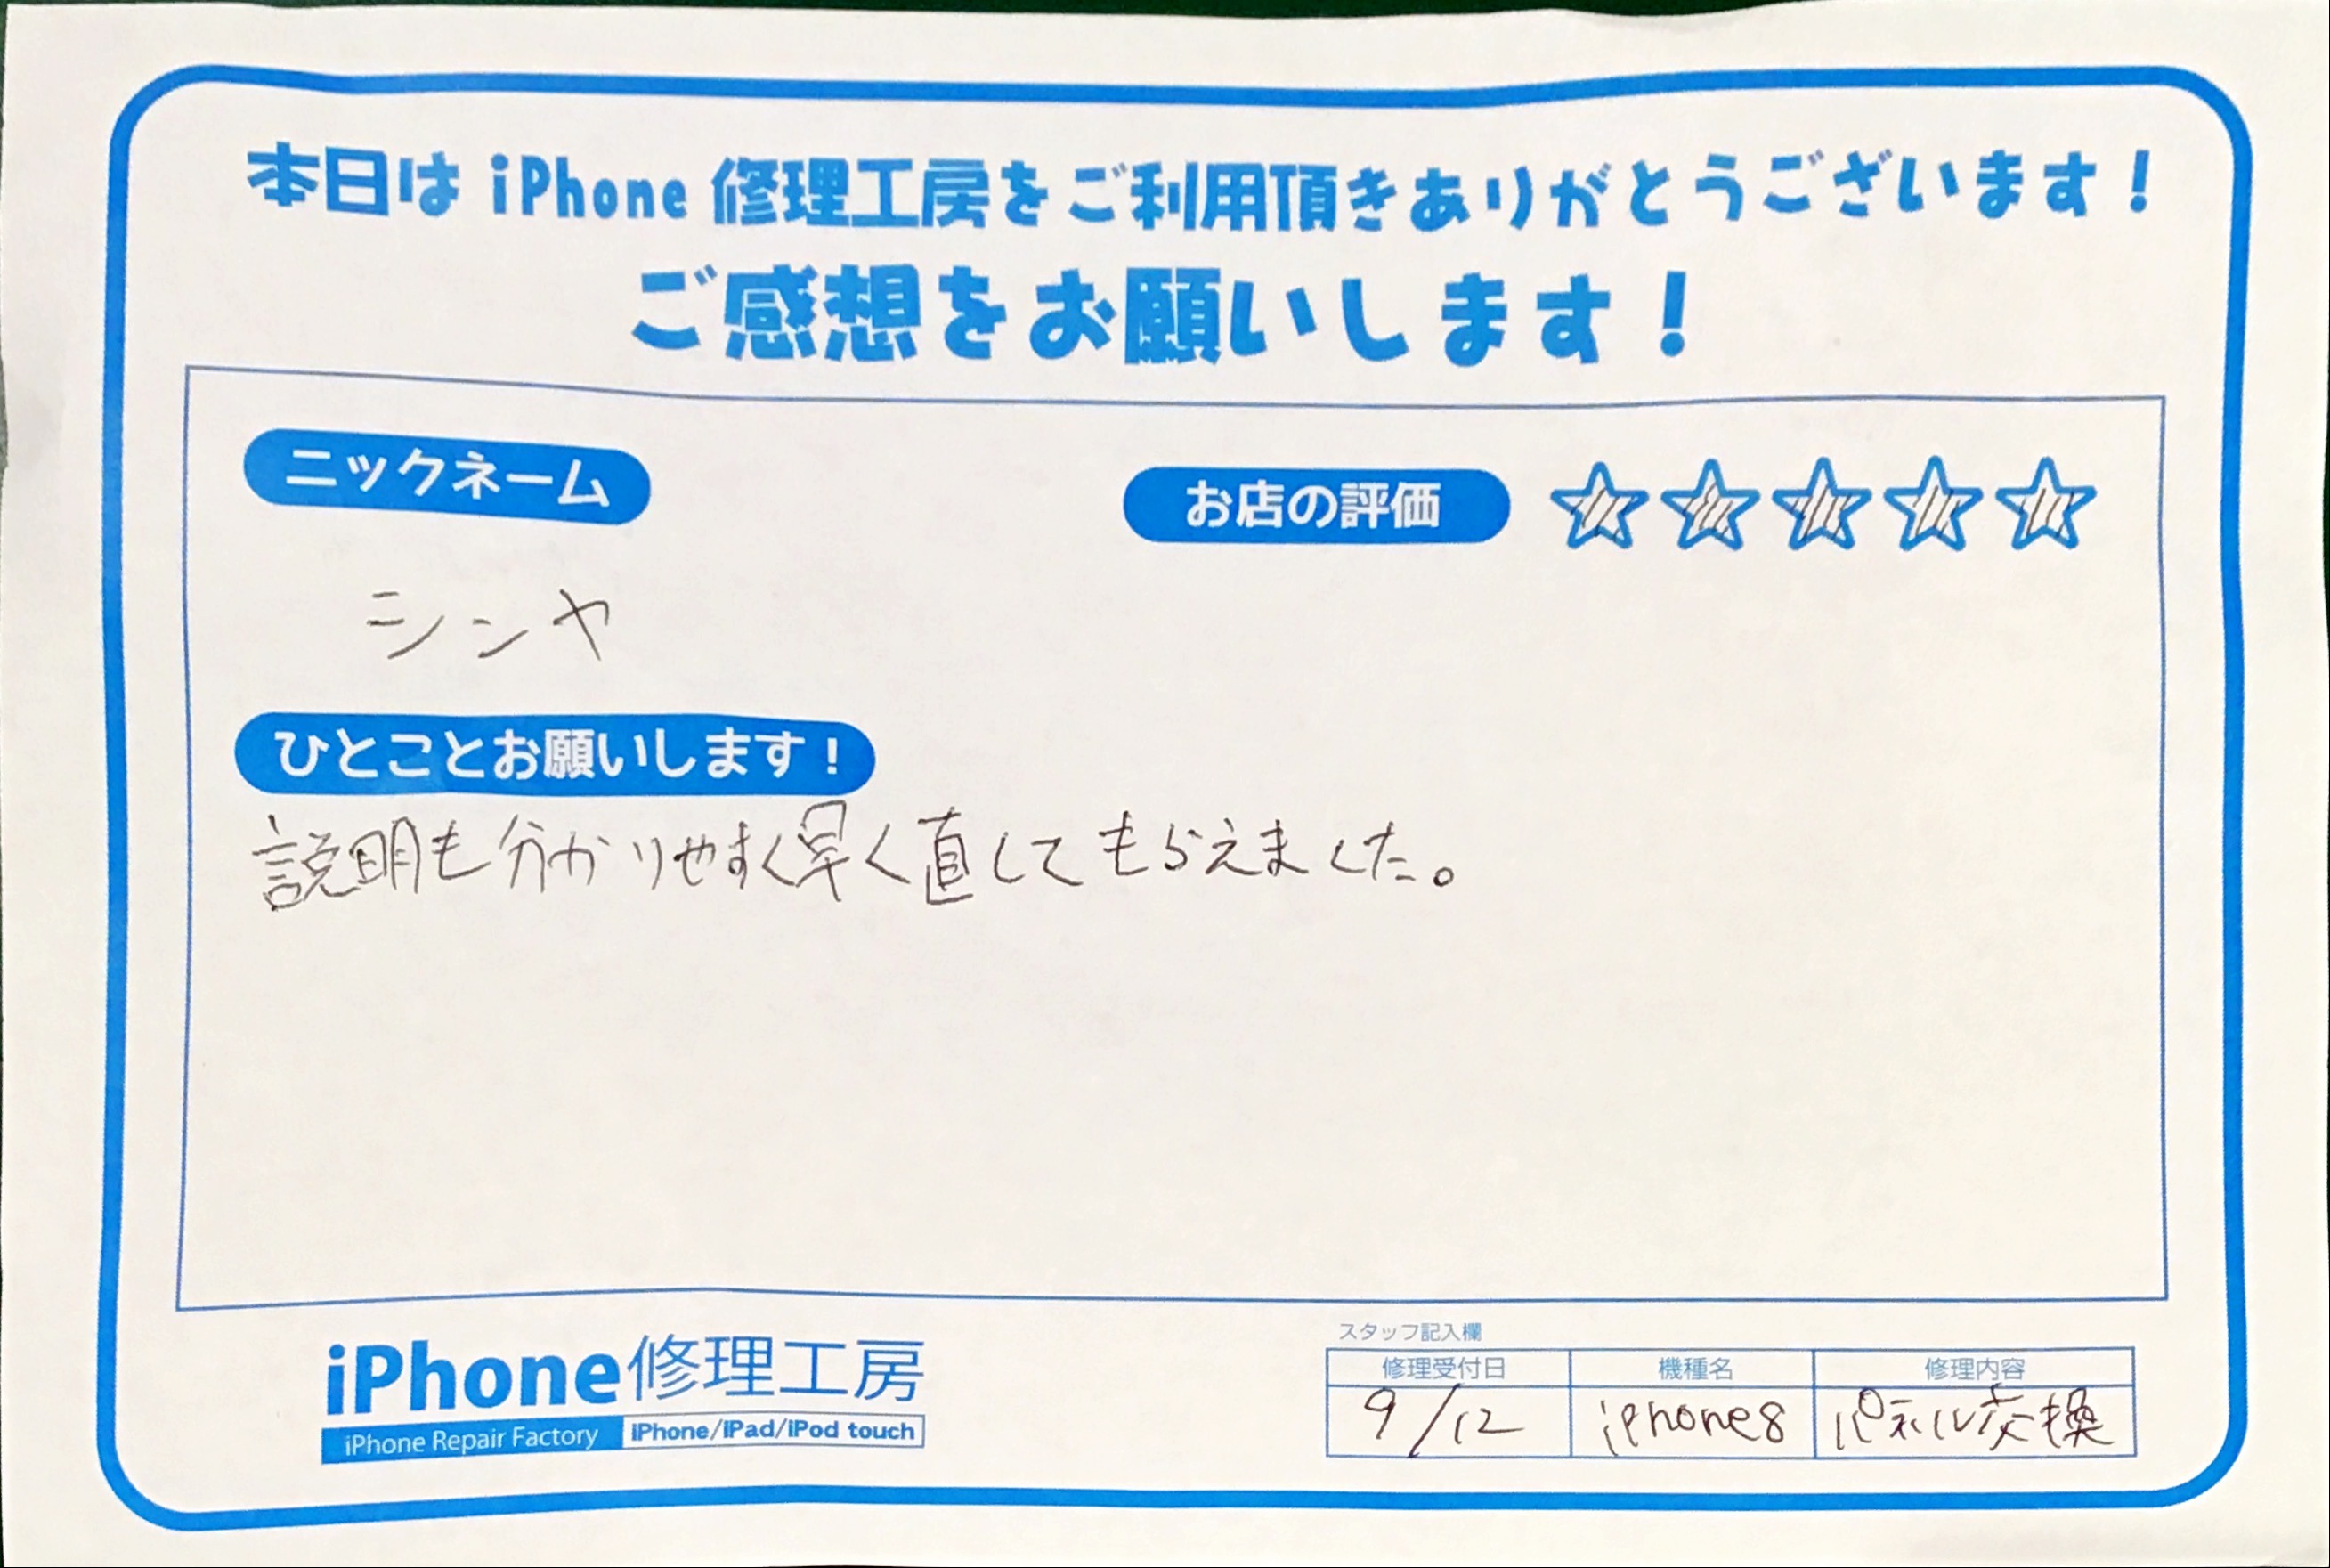 本日は iPhone 修理工房をご利用頂きありがとうございます！
ご感想をお願いします！
ニックネーム
お店の評価
シンヤ
ひとことお願いします！
説明も分かりやすく早く直してもらえました。
iPhone修理工房
iPhone Repair Factory iPhone/iPad/iPod touch
スタッフ記入欄
修理受付日 機種名 修理内容
9/12 iphone8 パネル交換